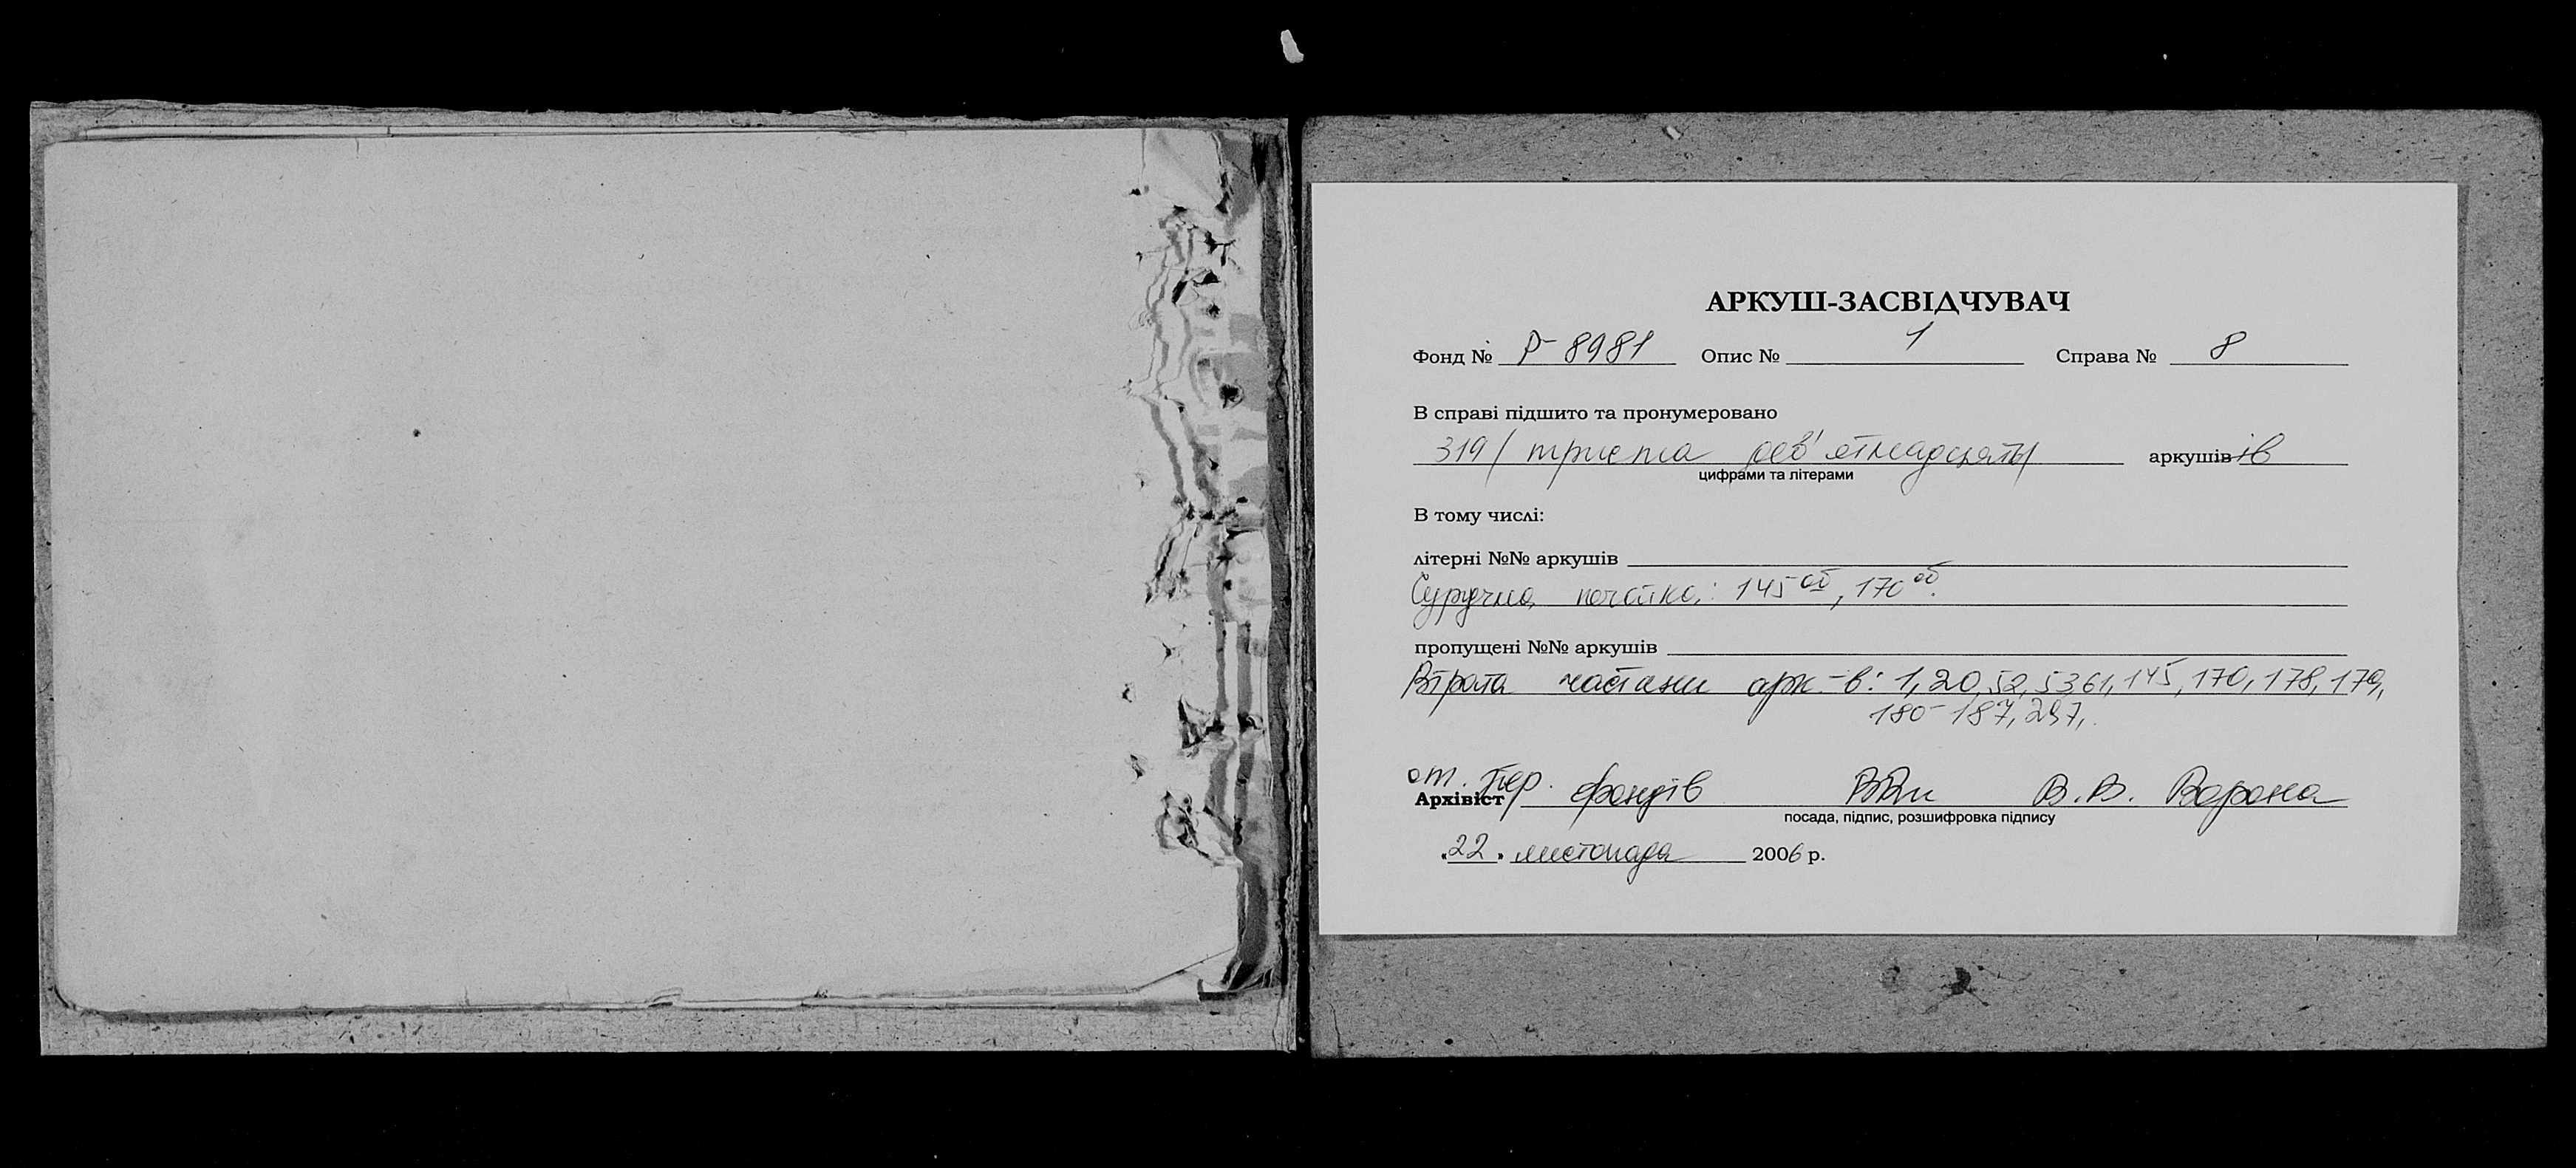 АРКУШ-ЗАСВІДЧУВАЧ
Фонд № Р-8981 Опис № 1 Справа № 8
В справі підшито та пронумеровано
319 / триста дев'ятнадцять / аркушів ів
цифрами та літерами
В тому числі:
літерні №№ аркушів
Сургучна печатка: 145об, 170об.
пропущені №№ аркушів
Втрата частини арк-в: 1, 20, 52, 53, 61, 145, 170, 178, 179,
180-187, 297,
Архівіст от. пер. фондів В.В. Ворона
посада, підпис, розшифровка підпису
«22» листопада 2006 р.